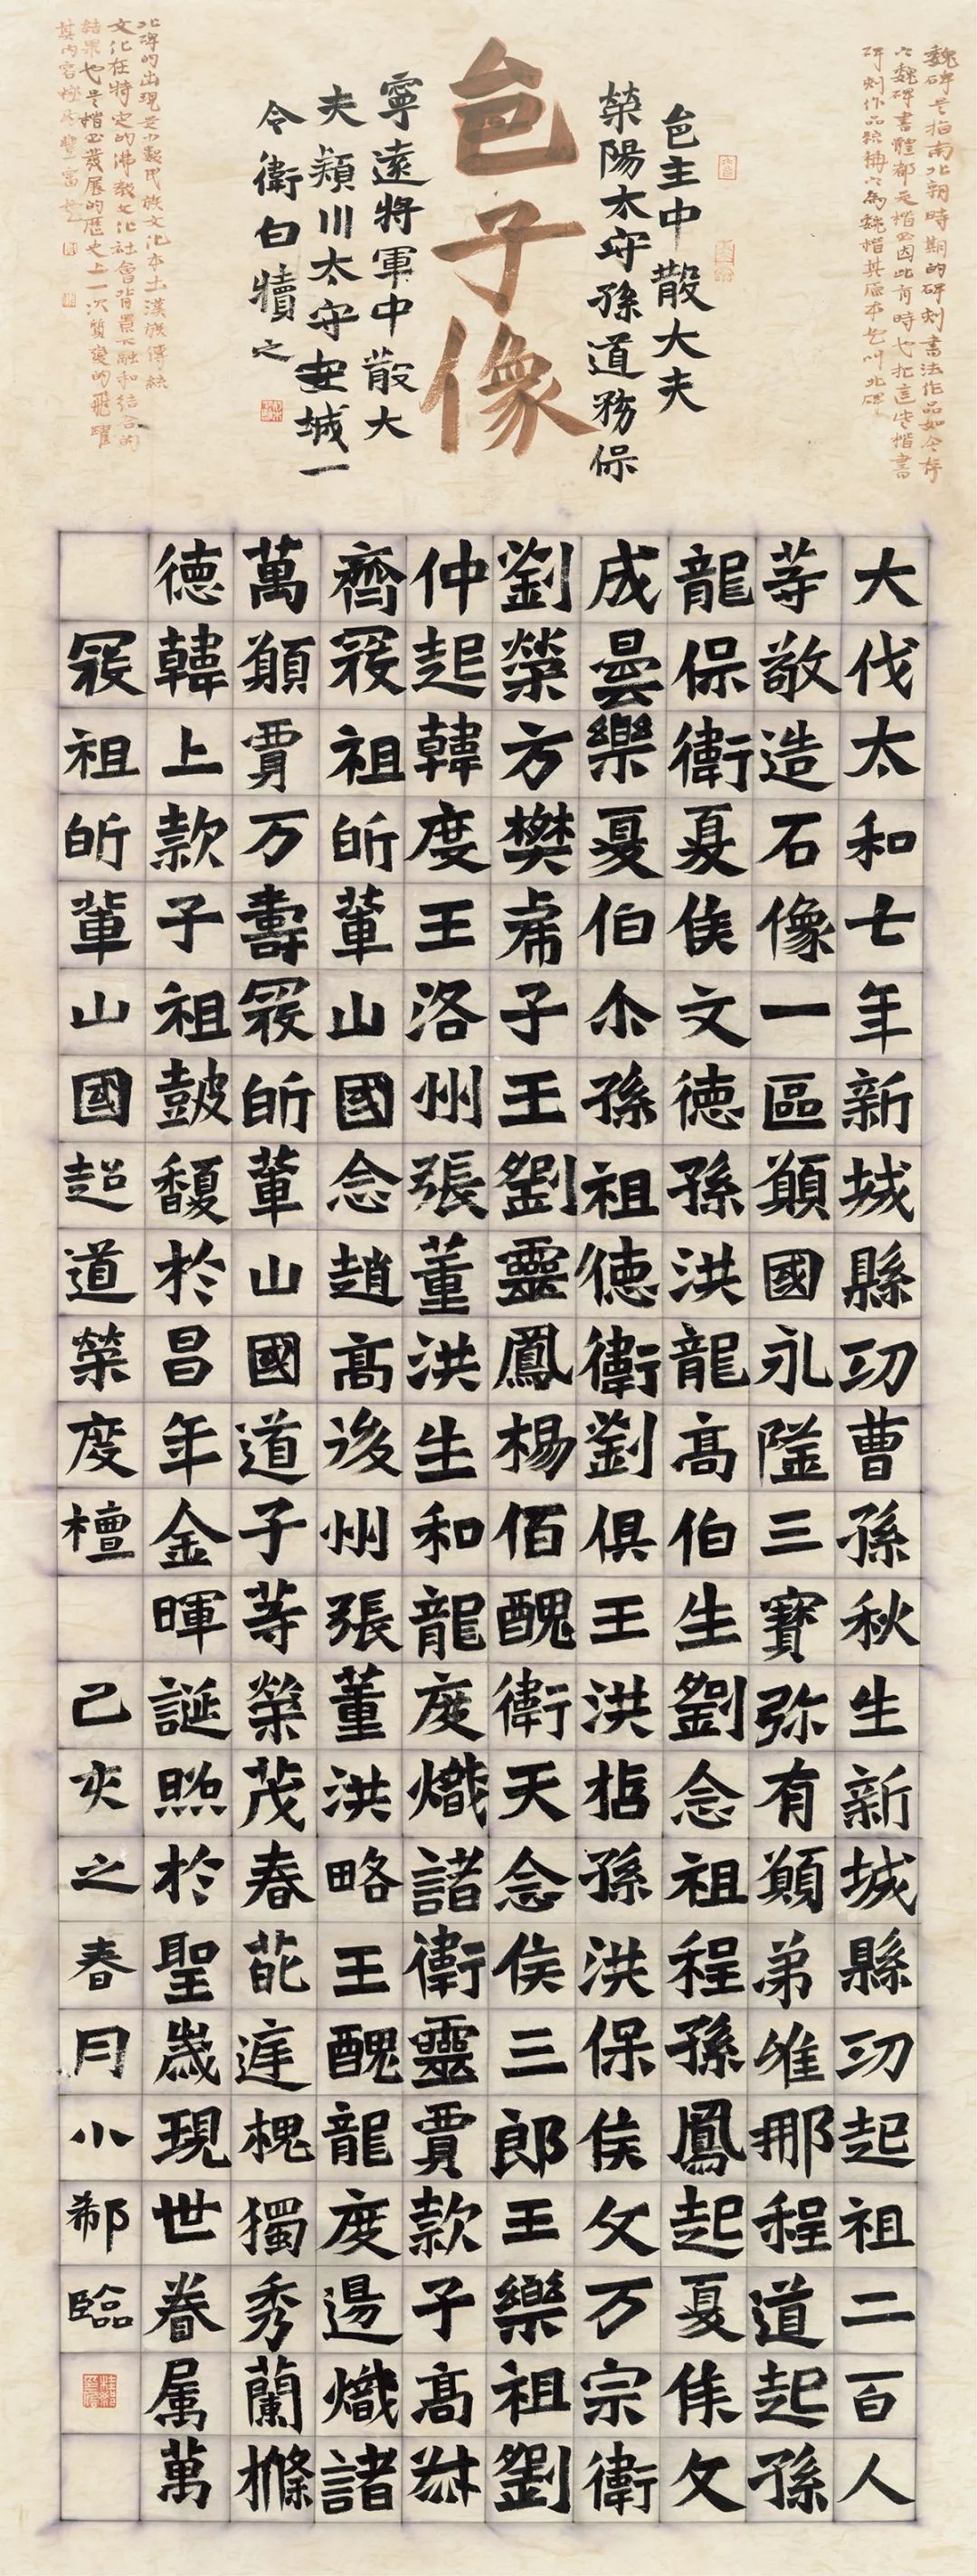 魏碑是指南北朝時期的碑刻書法作品如今存
魏碑書體都是楷書因此有時也把這些楷書
碑刻作品稱為魏楷其原本也叫北碑
邑主中散大夫
滎陽太守孫道務保
邑子像
寧遠將軍中散大
夫潁川太守安城
令衛白犢之
北碑的出現是少數民族文化本土漢族傳統
文化在特定的佛教文化社會背景下融和結合的
結果也是楷書發展的歷史上一次質變的飛躍
其內容極為豐富
大伐太和七年新城縣功曹孫秋生新城縣功起祖二百人
等敬造石像一區願國永隆三寶弥有願弟唯那程道起孫
龍保衛夏侯文德孫洪龍高伯生劉念祖程孫鳳起夏侯文
成曇樂夏伯尒孫祖德衛劉俱王洪拈孫洪保侯文万宗衛
劉榮方樊虎子王劉靈鳳楊佰醜衛天念侯三郎王樂祖劉
仲起韓度王洛州張董洪生和龍度熾諸衛靈賈款子高
齊祖昕輩山國念趙高後州張董洪略王醜龍度逷熾諸
萬願賈万壽昕輩山國道子等榮茂春葩遲槐獨秀蘭條
德韓上款子祖鼓馥於昌年金暉誕照於聖歲現世眷属萬
祖昕輩山國超道榮度檀己亥之春月小郗臨